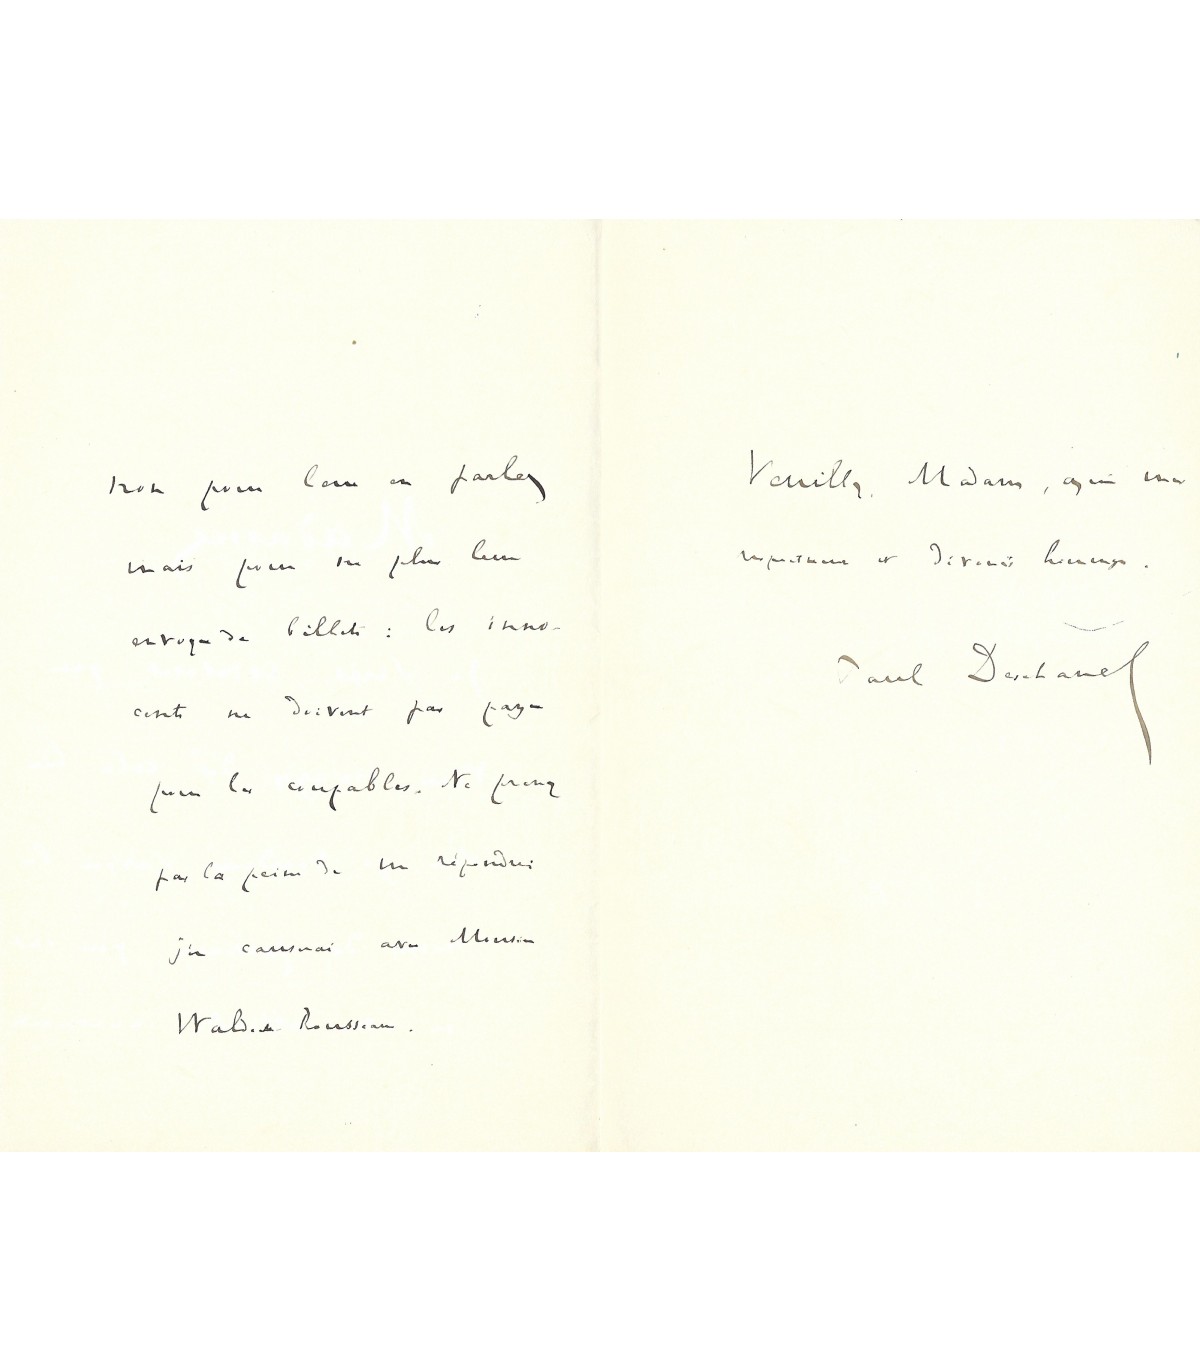 non pour leur en parler,
mais pour ne plus leur
envoyer de billets : les inno-
cents ne doivent pas payer
pour les coupables. Ne prenez
pas la peine de me répondre :
j'en causerai avec Monsieur
Waldeck Rousseau.
Veuillez, Madame, agréer mes
respectueux et dévoués hommages.
Paul Deschanel